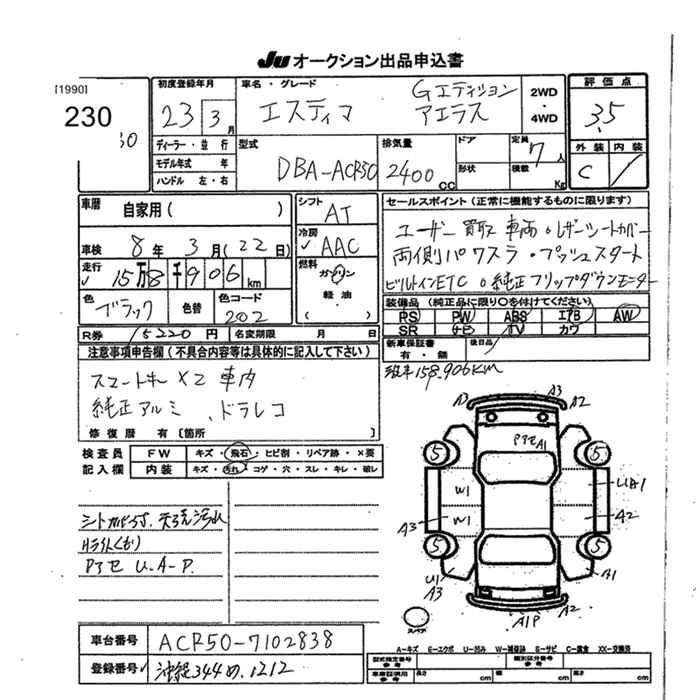 JU オークション出品申込書
[1990]
230
30
初度登録年月
23 3月
車名・グレード
エスティマ
Gエディション
アエラス
2WD
・
4WD
評価点
3.5
外装 内装
C
ディーラー・並行
モデル年式 年
ハンドル 左・右
型式
DBA-ACR50
排気量
2400 CC
ドア
形状
定員
7人
積載
Kg
車暦
自家用( )
車検 8年 3月(22日)
走行 15万8千906km
色
ブラック
色替
色コード
202
R券 15220円 名変期限 月 日
シフト
AT
冷房
AAC
燃料
ガソリン
軽油・
( )
セールスポイント(正常に機能するものに限ります)
ユーザー買取車両。レザーシートカバー
両側パワスラ・プッシュスタート
ビルトインETC。純正フリップダウンモニター
装備品(純正品に限り○を付けてください)
PS PW ABS エアB AW
SR ナビ TV カワ
新車保証書
有・無
後日品
注意事項申告欄(不具合内容等は具体的に記入して下さい)
スマートキー×2 車内
純正アルミ、ドラレコ
修復歴 有〔箇所
158,906km
検査員
記入欄
FW キズ・飛石・ヒビ割・リペア跡・×要
内装 キズ・汚れ・コゲ・穴・スレ・キレ・破レ
Pアセ U.A-P.
A3
A3
A2
PアセA1
5
5
W1
UA1
A3
W1
A2
5
5
U1
A3
A1
A1P
A2
スペア
車台番号
ACR50-7102838
登録番号
沖縄344め1212
A-キズ E-エクボ U-凹み W-補修跡 S-サビ C-腐食 XX-交換済
型式指定番号
参考
類別区分番号
参考
車庫証明用
参考
長さ cm 幅 cm 高さ cm